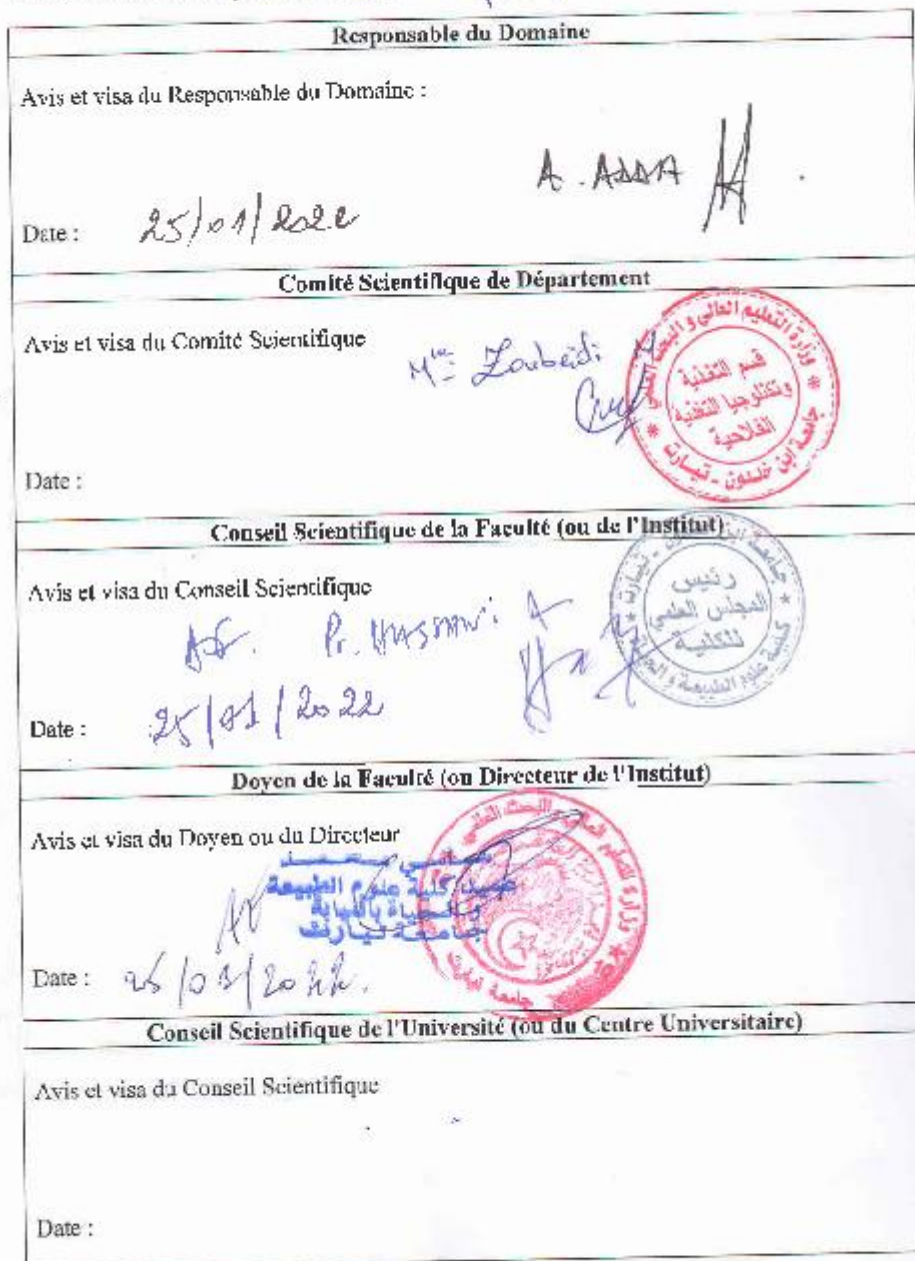 Responsable du Domaine
Avis et visa du Responsable du Domaine :
A. ADDA
Date : 25/01/2022
Comité Scientifique de Département
Avis et visa du Comité Scientifique
Mme Zoubeidi M
وزارة التعليم العالي و البحث العلمي
قسم التغذية
وتكنلوجيا التغذية
الفلاحية
جامعة ابن خلدون - تيارت
Date :
Conseil Scientifique de la Faculté (ou de l'Institut)
Avis et visa du Conseil Scientifique
Pr. HASSANI A
جامعة ابن خلدون - تيارت
رئيس
المجلس العلمي
للكلية
كلية علوم الطبيعة و الحياة
Date : 25/01/2022
Doyen de la Faculté (ou Directeur de l'Institut)
Avis et visa du Doyen ou du Directeur
عميد كلية علوم الطبيعة
و الحياة بالنيابة
جامعة تيارت
وزارة التعليم العالي و البحث العلمي
جامعة تيارت
Date : 25/01/2022.
Conseil Scientifique de l'Université (ou du Centre Universitaire)
Avis et visa du Conseil Scientifique
Date :